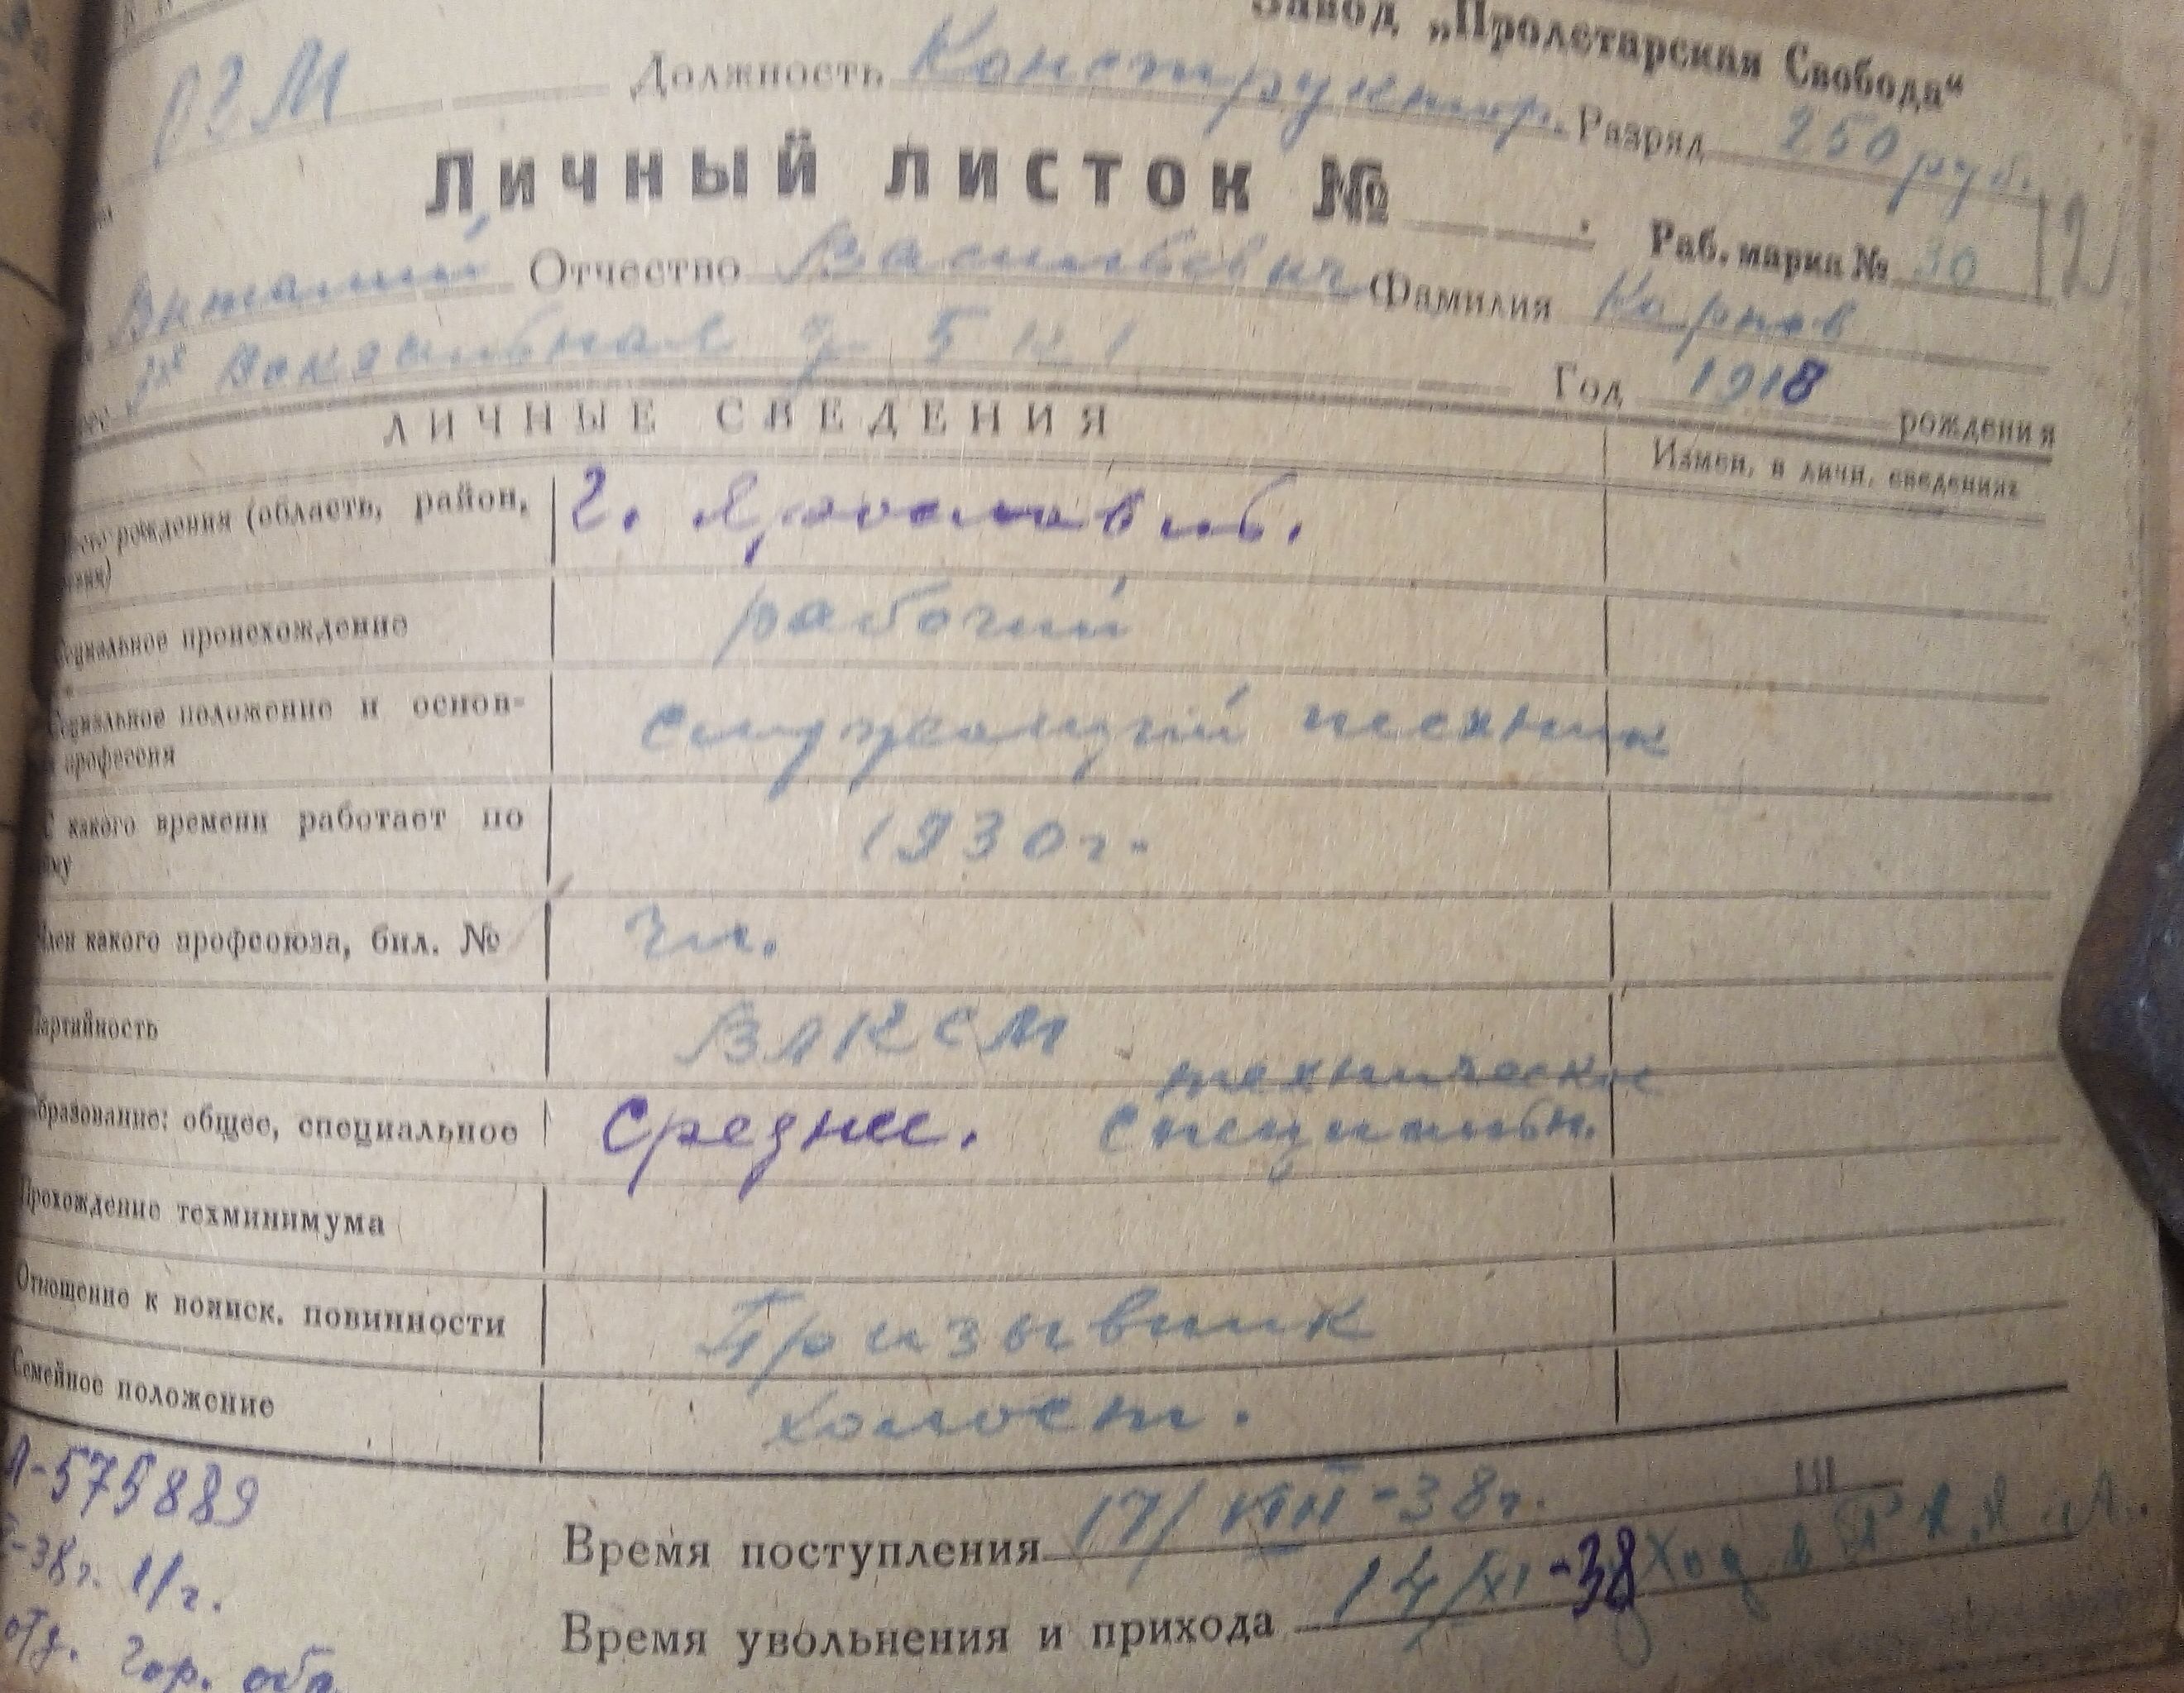 Завод „Пролетарская Свобода“
ОГМ Должность Конструктор. Разряд 250 руб.
Личный листок №
Раб. марка № 30
Виталий Отчество Васильевич Фамилия Карпов
д 5 к 1 Год 1918 рождения
ЛИЧНЫЕ СВЕДЕНИЯ Измен. в личн. сведениях
рождения (область, район, г. Ярославль.
социальное происхождение рабочий
Социальное положение и основ- служащий техник
профессия
С какого времени работает по 1930 г.
найму
Член какого профсоюза, бил. № чл.
Партийность ВЛКСМ
техническое
Образование: общее, специальное среднее. специальн.
Прохождение техминимума
Отношение к воинск. повинности Призывник
Семейное положение холост.
575889
-38г. 1/г.
отд. гор.
Время поступления 17/VIII-38г. III
Время увольнения и прихода 14/XI-38 уход в РККА.